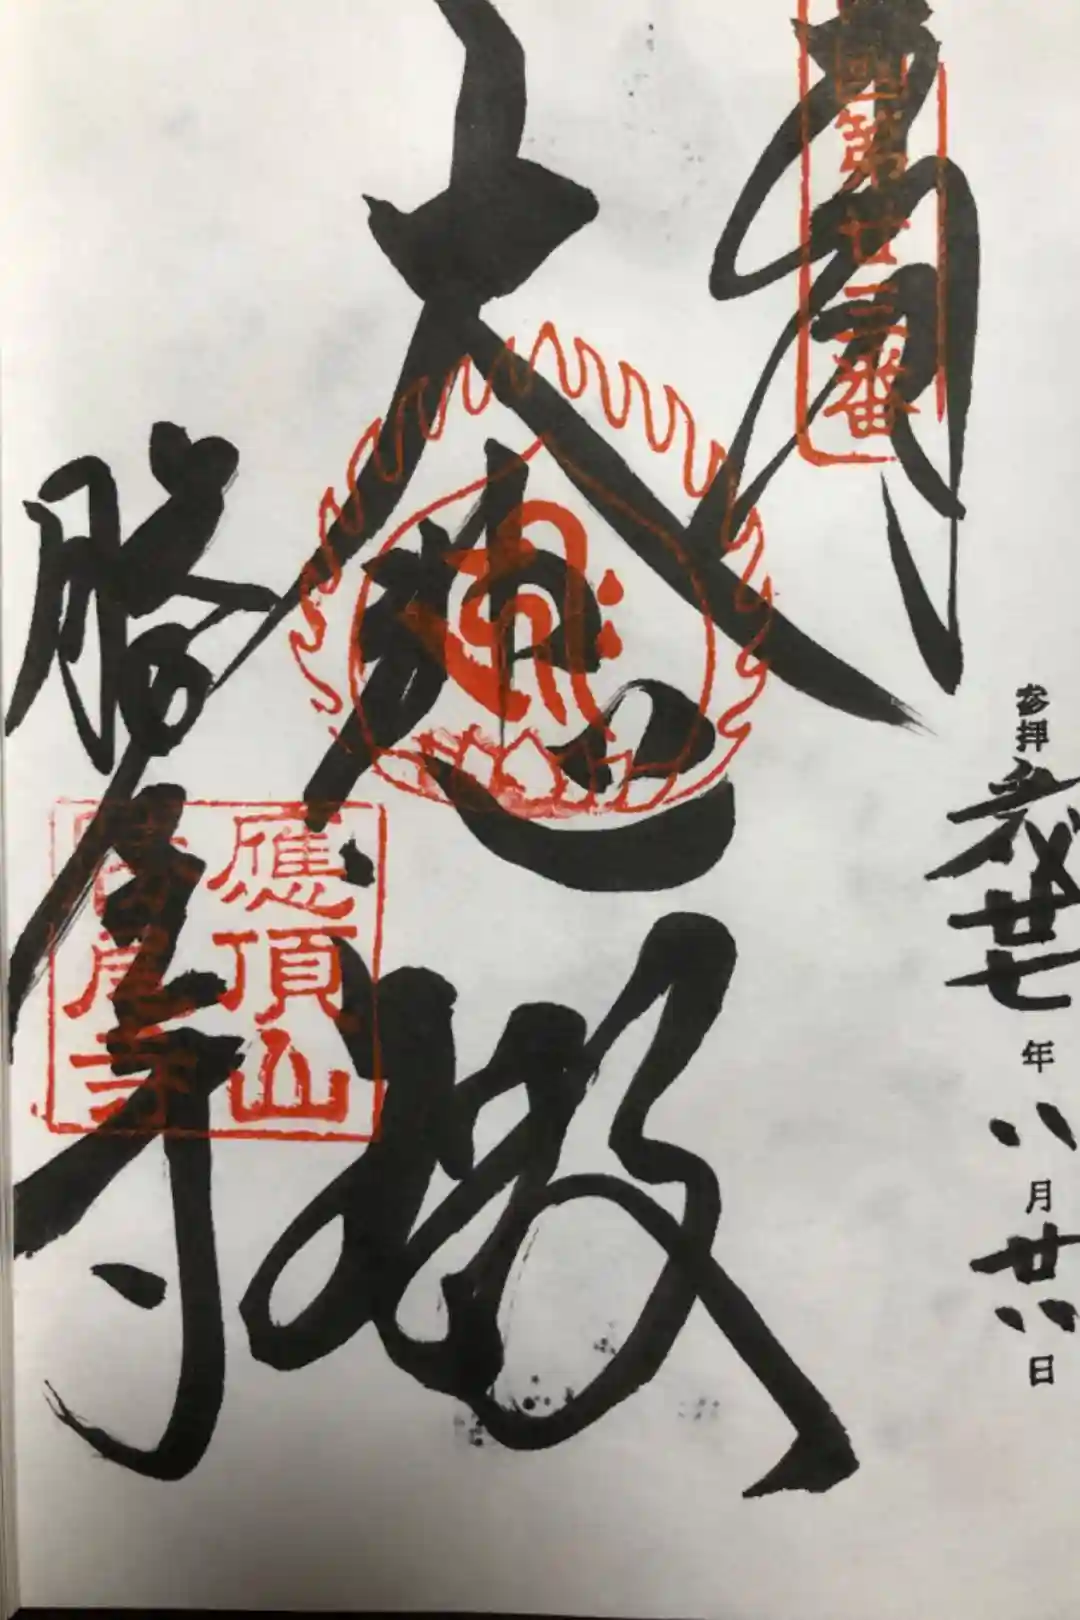 奉拝
國第廿三番
大悲殿
參拝 平成廿七年八月廿八日
勝尾寺
應頂山
勝尾寺